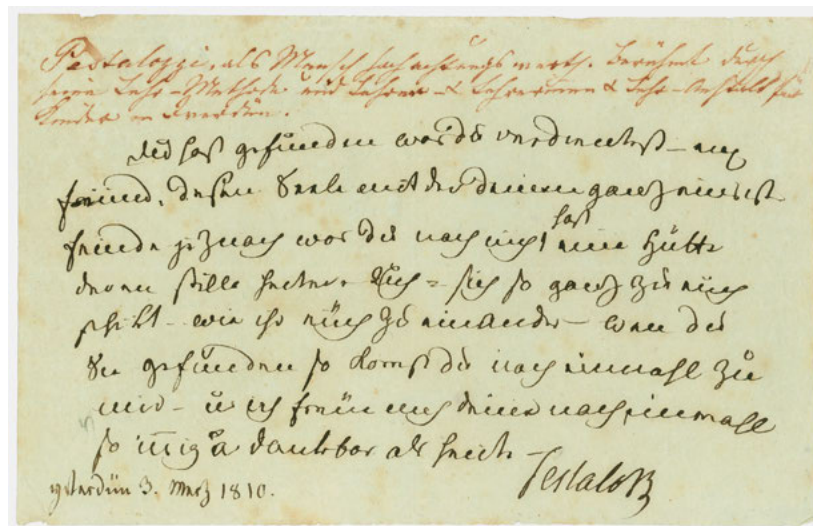 Pestalozzi, als Mensch hochachtungswerth. Berühmt durch
seine Lehr-Methode und Lehrer- & Lehrerinnen & Lehr-Anstalt für
Kinder in Iverdün.
Du hast gefunden was du verdientest – ein
freund, dessen Seele mit der deinen ganz eins ist
finde jez noch was du noch nicht hast eine Hütte
deren stille heitere sich so ganz zu euch
schikt – wie ihr euch zu einander – wen du
Sie gefunden so komst du noch einmahl zu
mir – u ich freue mich deiner noch einmahl
so innig u dankbar als heute –
Pestalozzi
Yverdün 3. Merz 1810.